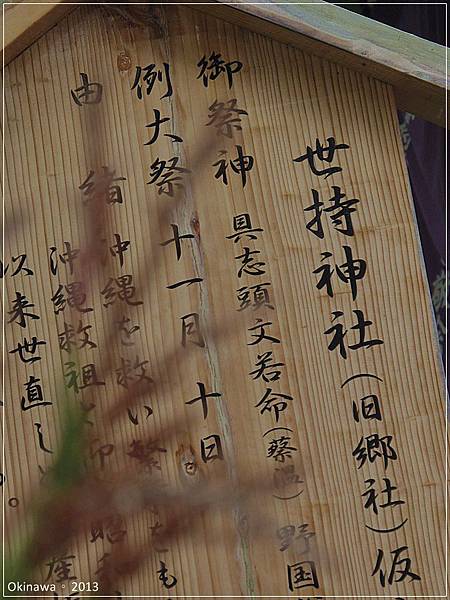 世持神社(旧郷社)仮
御祭神 具志頭文若命(蔡温) 野国
例大祭 十一月 十日
由緒 沖縄を救い繁
沖縄救祖と仰
以来世直し
Okinawa。2013